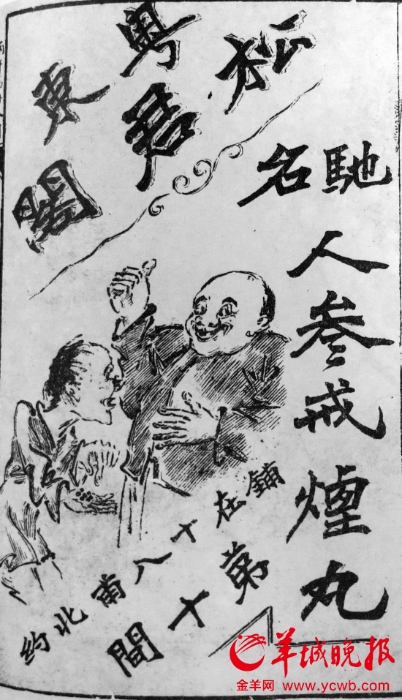 粤東
松君閣
馳名
人叄戒煙丸
鋪在十八甫北約
第十間
羊城晚报
金羊网 www.ycwb.com